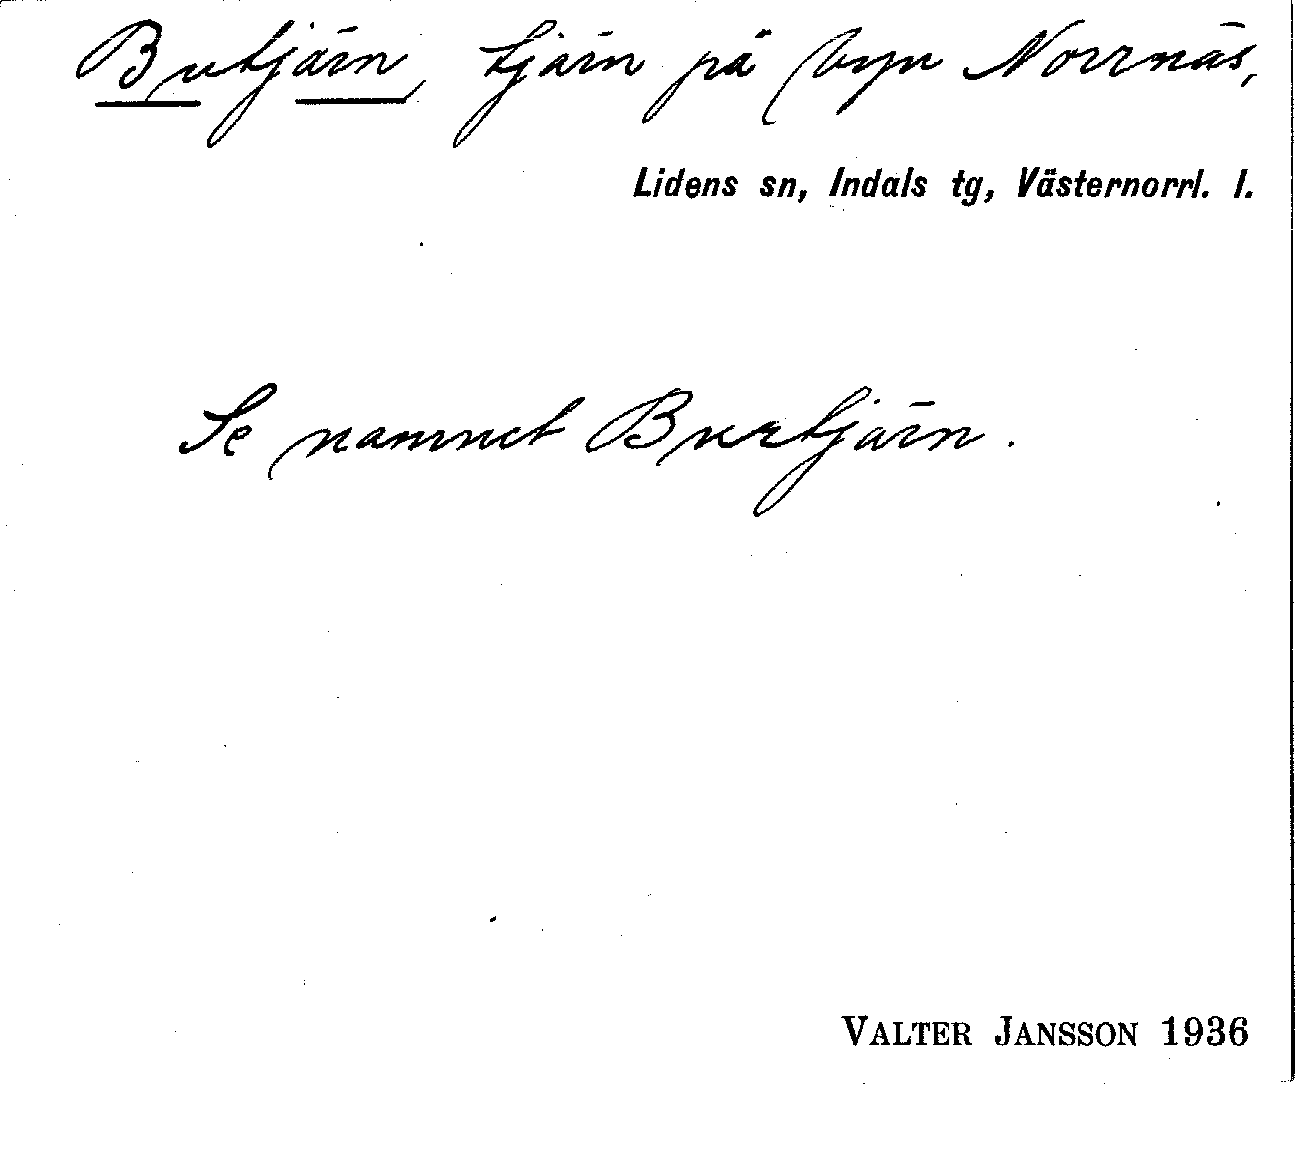 Butjärn, tjärn på byn Norrnäs,
Lidens sn, Indals tg, Västernorrl. l.
Se namnet Burtjärn.
VALTER JANSSON 1936